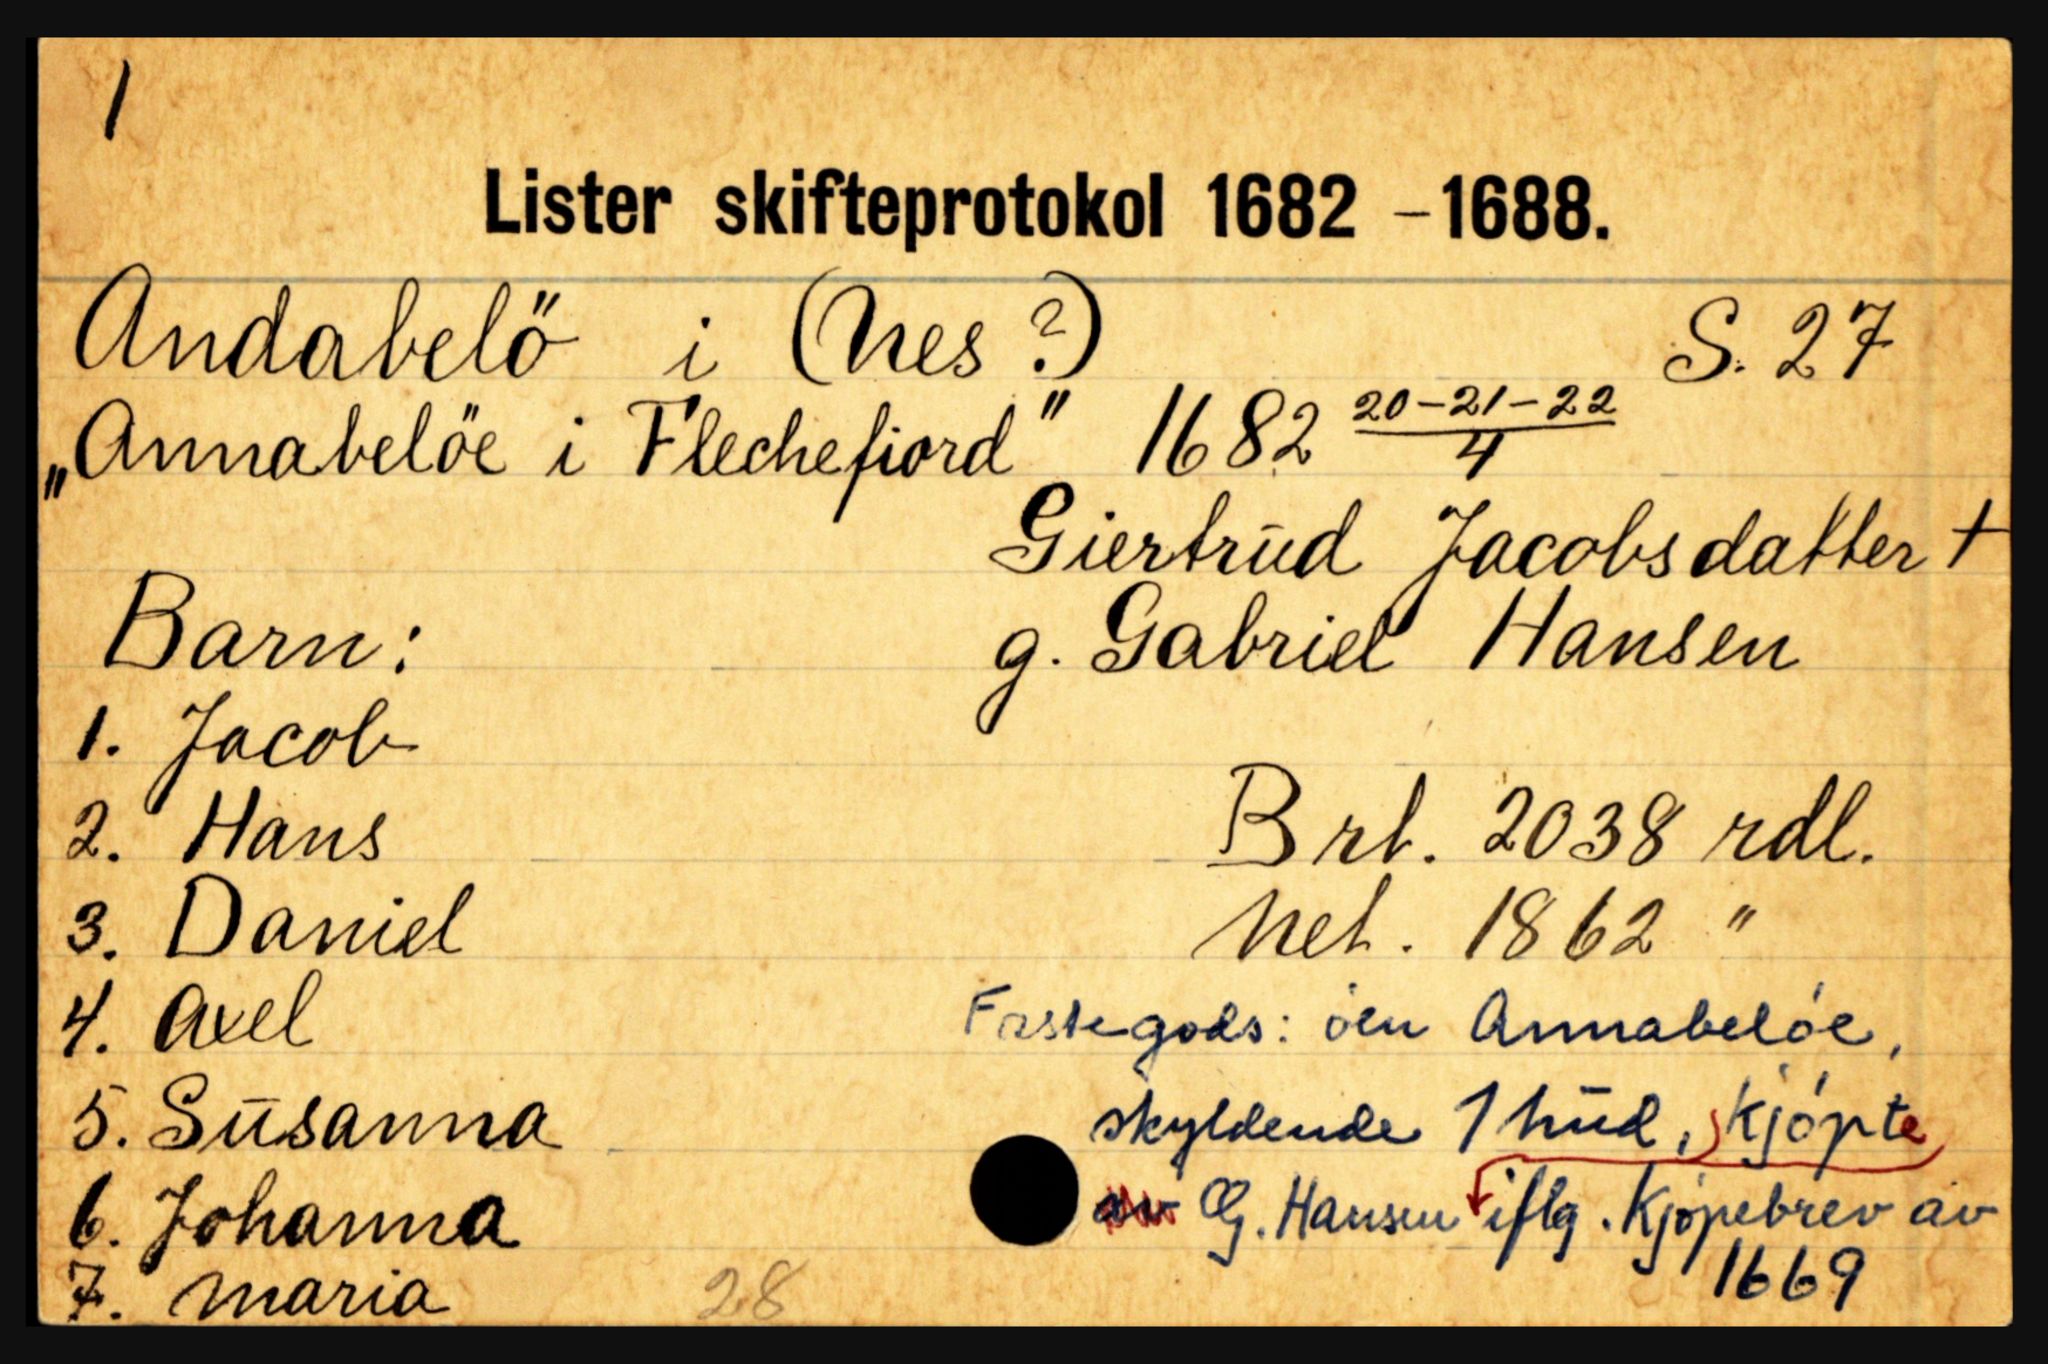 1
Lister skifteprotokol 1682 - 1688.
Andabelö i (Nes ?) S. 27
„Annabelöe i Flechefiord" 1682 20-21-22/4
Giertrūd Jacobsdatter +
Barn: g. Gabriel Hansen
1. Jacob
2. Hans Brt. 2038 rdl.
3. Daniel Net. 1862 "
4. Axel Faste gods: óen Annabelóe,
5. Sūsanna skyldende 1 hūd, kjópte
6. Johanna av G. Hansen iflg. Kjópebrev av
7. Maria 28 1669